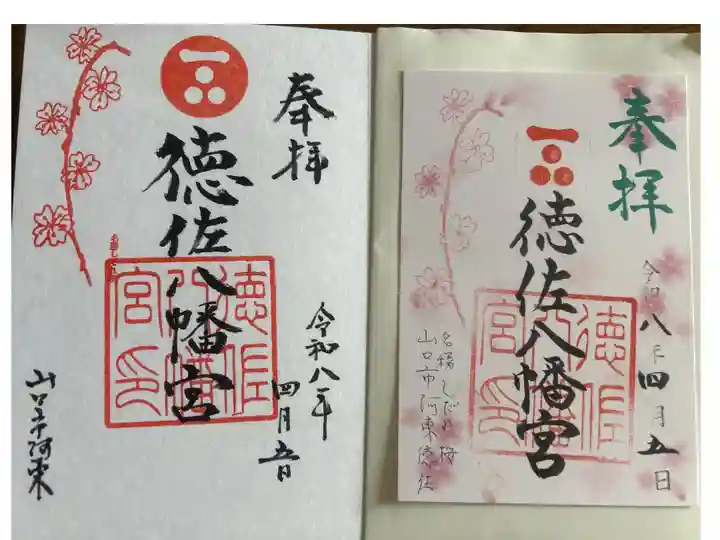 奉拝
徳佐八幡宮
徳佐八幡宮印
令和八年
四月五日
山口市阿東
奉拝
徳佐八幡宮
徳佐八幡宮印
令和八年
四月五日
名勝しだれ桜
山口市阿東徳佐